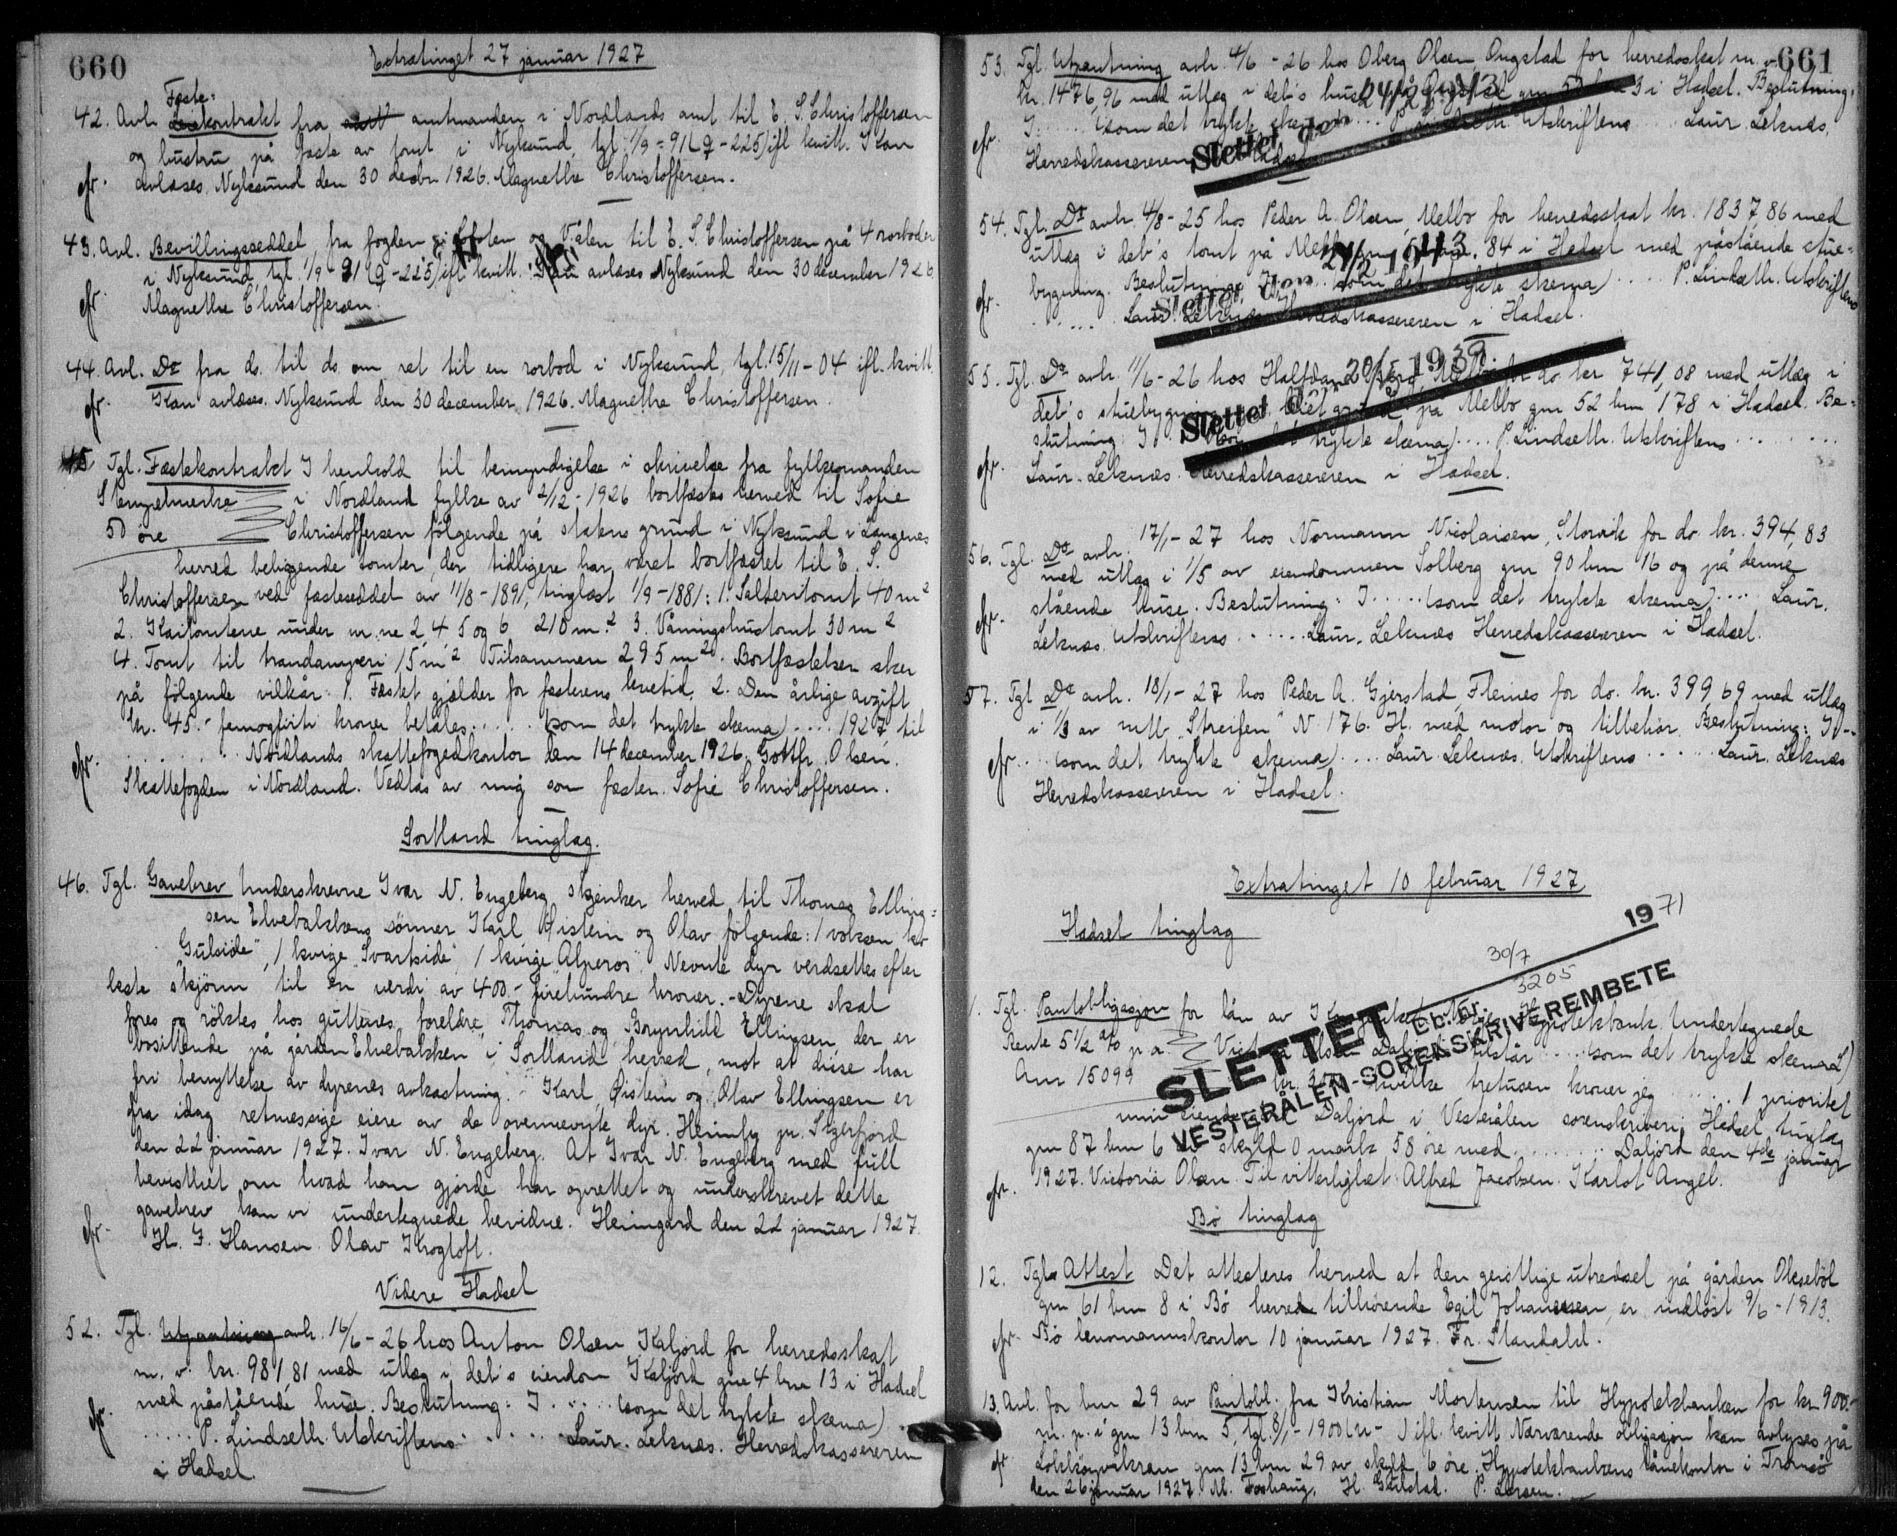 660
Extratinget 27 januar 1927
Feste:
42. Avl. kontrakt fra amtmanden i Nordlands amt til E. S. Christoffersen
og hustru på feste av tomt i Nyksund, tgl. 1/9 - 91 (Q - 225) ifl kvitt. Kan
cfr. avlæses. Nyksund den 30 decbr 1926. Magnethe Christoffersen.
43. Avl. Bevillingsseddel fra fogden i Lofoten og V.ålen til E. S. Christoffersen på 4 rorboder
i Nyksund, tgl 1/9 - 91 (Q - 225) ifl kvitt. Kan avlæses Nyksund den 30 december 1926
cfr. Magnethe Christoffersen.
44. Avl. Do fra ds. til ds. om ret til en rorbod i Nyksund, tgl. 15/11 - 04 ifl. kvitt.
cfr. Kan avlæses. Nyksund den 30 december 1926. Magnethe Christoffersen.
45 Tgl. Fæstekontrakt I henhold til bemyndigelse i skrivelse fra fylkesmanden
Stempelmerke i Nordland fylke av 2/12 - 1926 bortfæstes herved til Sofie
50 øre Christoffersen følgende på statens grund i Nyksund i Langenes
herred beliggende tomter, der tidligere har været bortfæstet til E. S.
Christoffersen ved festeseddel av 11/8 - 1891, tinglæst 1/9 - 1881: 1. Salteritomt 40 m2
2. Kaitomtene under m. ne 2, 4 5 og 6 210 m.2 3. Våningshustomt 30 m2
4. Tomt til trandamperi 15 m2 Tilsammen 295 m2. Bortfæstelsen sker
på følgende vilkår: 1. Fæstet gjælder for festerens levetid, 2. Den årlige avgift
kr. 45.- femogfirti kroner betales ..... (som det trykte skema) .... 1927, til
cfr. ........ Nordlands skattefogedkontor den 14 december 1926. Gottfr. Olsen.
Skattefogden i Nordland. Vedtas av mig som fester. Sofie Christoffersen.
Sortland tinglag.
46. Tgl. Gavebrev Underskrevne Ivar N. Engeberg skjenker herved til Thomas Elling=
sen Elvebakkens sønner Karl Øistein og Olav følgende: 1 voksen ku
"Gulside", 1 kvige "Svartside", 1 kvige "Alperos". Nevnte dyr verdsettes efter
beste skjønn til en verdi av 400.- firehundre kroner. - Dyrene skal
fores og røktes hos guttenes foreldre, Thomas og Borgnhild Ellingsen, der er
bosittende på gården Elvebakken i Sortland herred, mot at disse har
fri benyttelse av dyrenes avkastning. - Karl, Øistein og Olav Ellingsen er
fra idag retmessige eiere av de ovennevnte dyr. Heimly pr. Sigerfjord
den 22 januar 1927. Ivar N. Engeberg. At Ivar N. Engeberg med full
bevissthet om hvad han gjorde har oprettet og underskrevet dette
gavebrev kan vi undertegnede bevidne. Heimgård den 22 januar 1927.
cfr. H. J. Hansen. Olav Krogtoft.
Videre Hadsel
52. Tgl. Utpantning avh. 16/6 - 26 hos Anton Olsen Kaljord for herredsskat
m. v. kr. 981,81 med utlæg i deb's eiendom Kaljord gnr 4 bnr 13 i Hadsel
med påstående huse. Beslutning: I ..... (som det trykte skema) ..
cfr. ..... P. Lindseth. Utskriftens ...... Laur. Leknæs. Herredskassereren
i Hadsel.
661
53. Tgl. Utpantning avh. 4/6 - 26 hos Oberg Olsen Ongstad for herredsskat m. v.
kr. 1476,96 med utlæg i deb's huse på 3 i Hadsel. Beslutning:
I ..... (som det trykte skema) ... P. Lindseth. Utskriftens .... Laur. Leknæs.
cfr. Herredskassereren i Hadsel
Slettet den 24/2 1943
54. Tgl. Do avh. 4/8 - 25 hos Peder A. Olsen, Melbo for herredsskat kr. 1837,86 med
utlæg i deb's tomt på Melbo 84 i Hadsel med påstående stue=
bygning. Beslutning: I ..... (som det trykte skema) .... P. Lindseth. Utskriftens
cfr. ...... Laur. Leknæs Herredskassereren i Hadsel.
Slettet den 24/2 1943
55. Tgl. Do avh. 11/6 - 26 hos Halfdan Melbo for do kr 741,08 med utlæg i
deb's stuebygning på Melbo gnr 52 bnr 178 i Hadsel. Be=
slutning: I .... (som det trykte skema) .... P. Lindseth. Utskriftens ........
cfr. Laur. Leknæs. Herredskassereren i Hadsel.
Slettet den 20/ 1939
56. Tgl. Do avh. 17/1 - 27 hos Normann Nicolaisen, Storvik for do. kr. 394,83
med utlæg i 1/5 av eiendommen Solberg gnr 90 bnr 16 og på denne
stående huse. Beslutning: I ..... (som det trykte skema) .... Laur.
cfr. Leknæs. Utskriftens ...... Laur. Leknæs Herredskassereren i Hadsel.
57. Tgl Do avh. 18/1 - 27 hos Peder A. Gjerstad, Fleines for do. kr. 399,69 med utlæg
i 1/3 av m/b "Streifen" N. 176. H. med motor og tilbehør. Beslutning: I ..
cfr. .... (som det trykte skema) .... Laur Leknæs. Utskriftens ...... Laur. Leknæs
Herredskassereren i Hadsel.
Extratinget 10 februar 1927
Hadsel tinglag
1. Tgl. Pantobligasjon for lån av Kongeriket Norges Hypotekbank. Undertegnede
Rente 5 1/2 % p. a. Victoria Olsen Daljord tilstår .... (som det trykte skema L)
Anr 15099 kr. 3000.- hvilke tretusen kroner jeg ...... 1 prioritet
min eiendom Daljord i Vesterålen sorenskriveri, Hadsel tinglag
gnr 87 bnr 6 av skyld 0 mark 58 øre med ........ Daljord den 4de januar
cfr. 1927. Victoria Olsen. Til vitterlighet: Alfred Jacobsen. Karlot Angel.
SLETTET 30/7 1971
Db. nr. 3205
VESTERÅLEN SORENSKRIVEREMBETE
Bø tinglag
12. Tgl. Attest Det attesteres herved at den geistlige utredsel på gården Oksebøl
gnr 61 bnr 8 i Bø herred tilhørende Egil Johannesen, er indløst 9/6 - 1913.
cfr. Bø lensmannskontor 10 januar 1927. Fr. Standahl.
13. Avl. for bnr 29 av Pantobl. fra Kristian Mortensen til Hypotekbanken for kr 900.-
m. p. i gnr 13 bnr 5, tgl. 8/1 - 1900 ifl. kvitt. Nærværende obligasjon kan avlyses på
cfr gnr 13 bnr 29 av skyld 6 øre. Hypotekbankens lånekontor i Tromsø
den 26 januar 1927. M. Foshaug. H. P. Larsen.